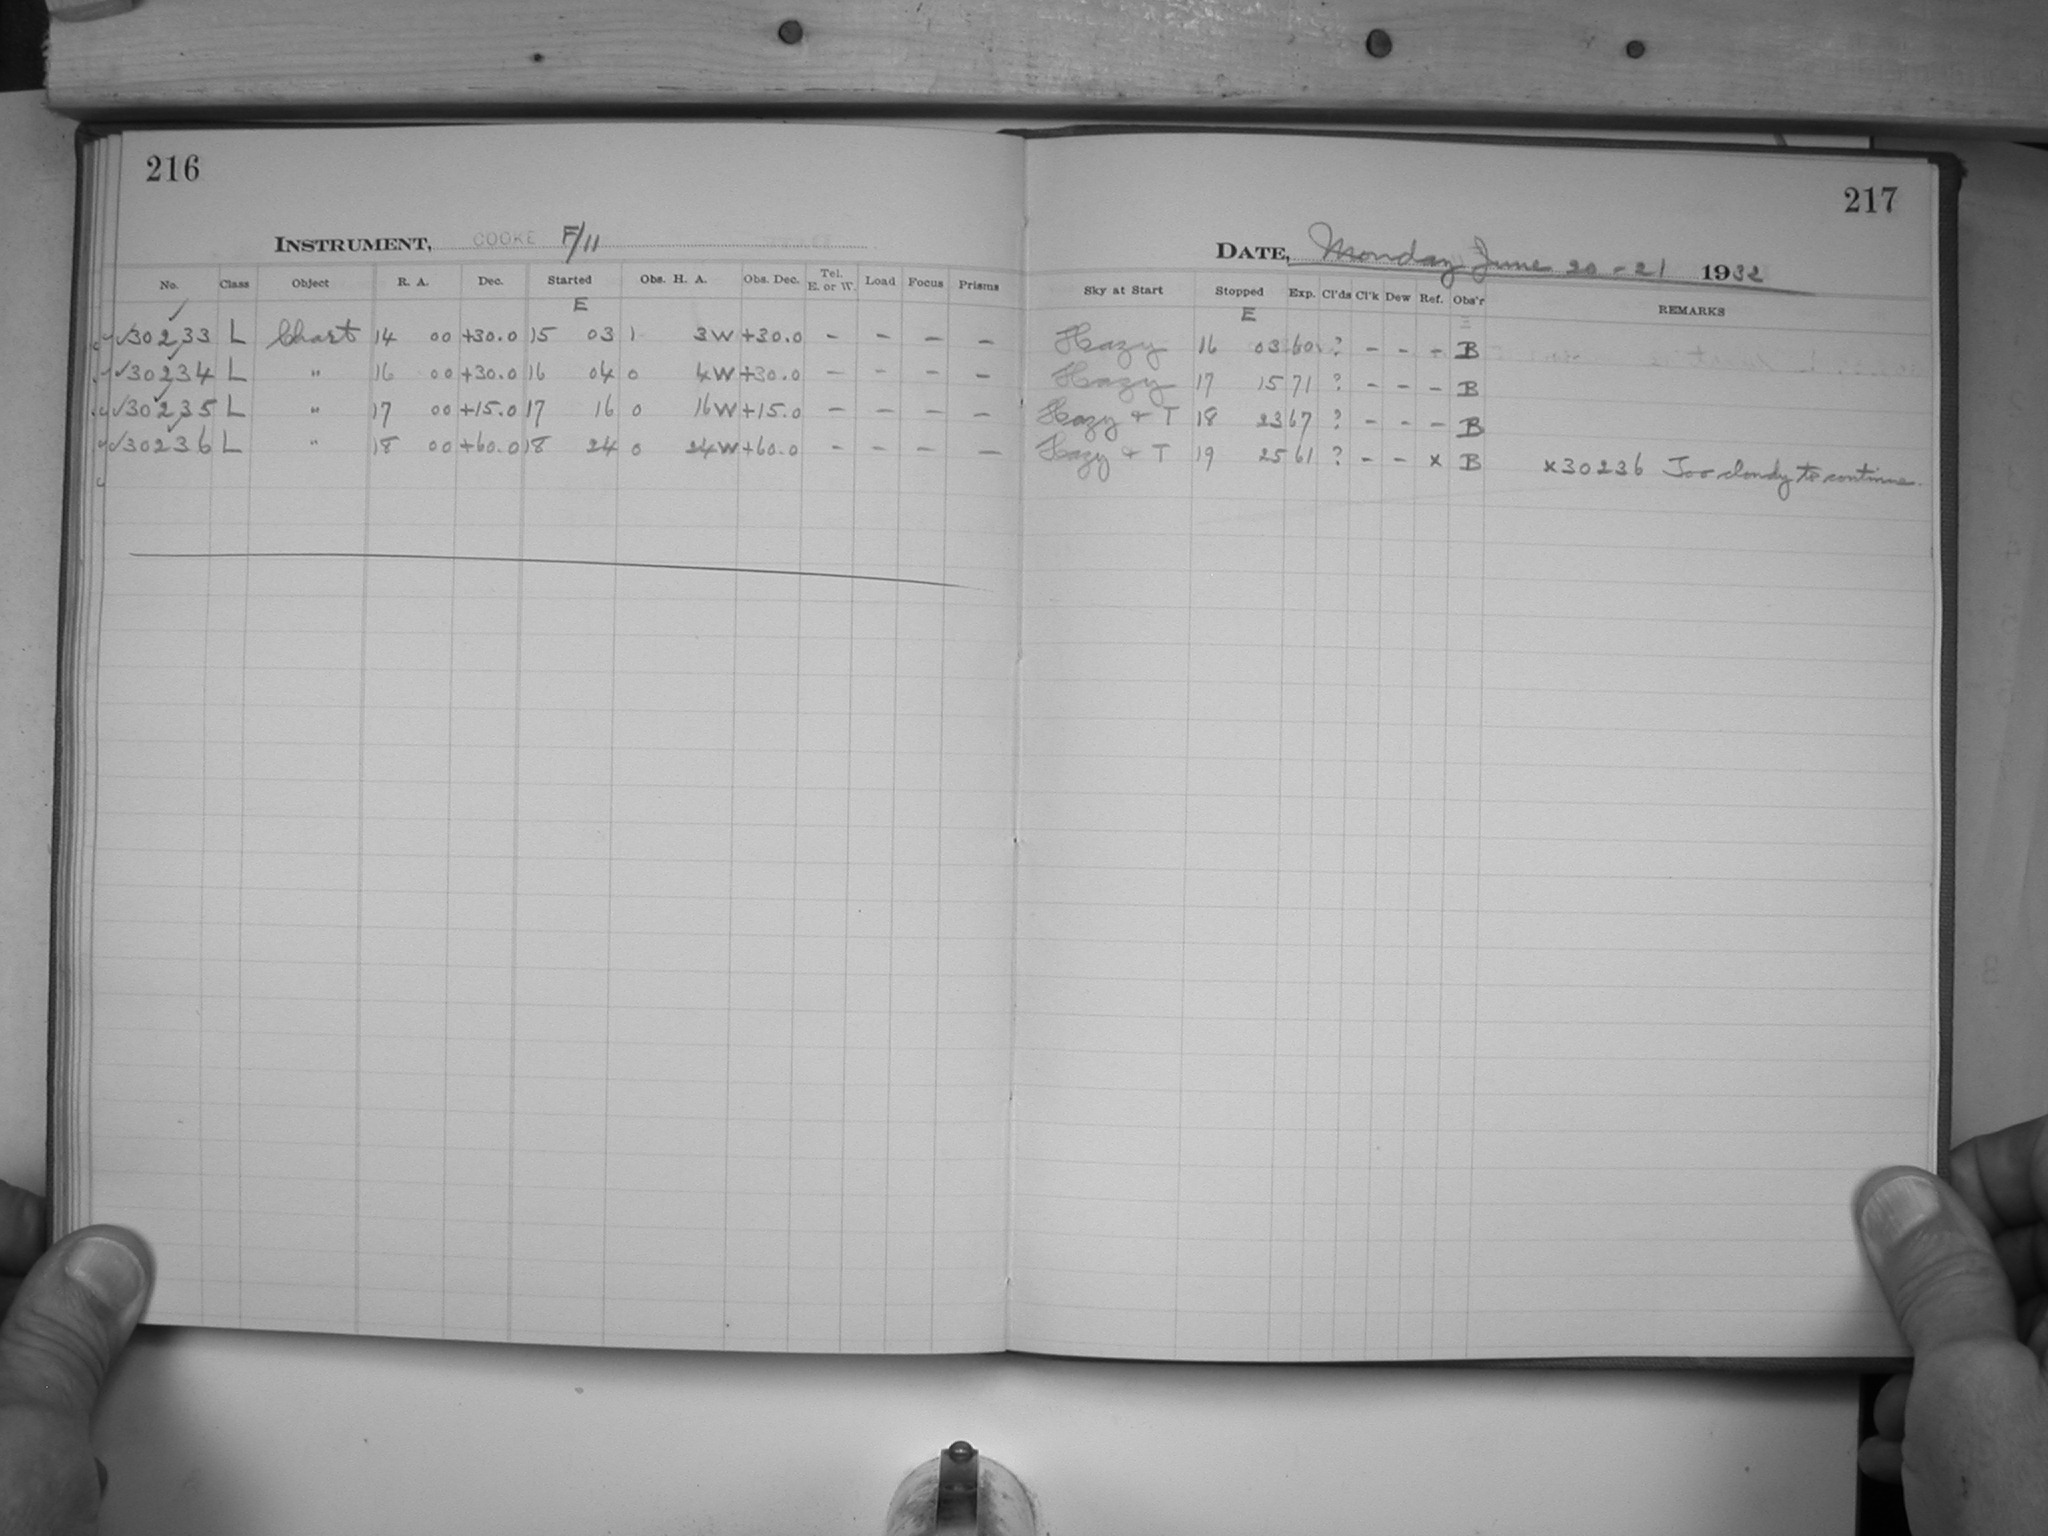 216
INSTRUMENT, COOKE F/11
No. Class Object R. A. Dec. Started Obs. H. A. Obs. Dec. Tel. E. or W. Load Focus Prisms
E
✓30233 L Chart 14 00 +30.0 15 03 1 3W +30.0 – – – –
✓30234 L " 16 00 +30.0 16 04 0 4W +30.0 – – – –
✓30235 L " 17 00 +15.0 17 16 0 16W +15.0 – – – –
✓30236 L " 18 00 +60.0 18 24 0 24W +60.0 – – – –
217
DATE, Monday June 20-21 1932
Sky at Start Stopped Exp. Cl'ds Cl'k Dew Ref. Obs'r REMARKS
E
Hazy 16 03 60 ? – – – B
Hazy 17 15 71 ? – – – B
Hazy + T 18 23 67 ? – – – B
Hazy + T 19 25 61 ? – – x B x30236 Too cloudy to continue.